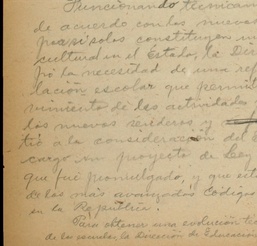 Funcionando técnicam
de acuerdo con las nuevas
por sí solas constituyen un
cultural en el Estado, la Dir
pó la necesidad de una re
lación escolar que permi
vimiento de las actividades
dos nuevos senderos y
tió a la consideración del E
cargo un proyecto de Ley
que fué promulgado, y que est
de las más avanzados Códigos
en la República.
Para obtener una evolución té
de las escuelas la Dirección de Educación